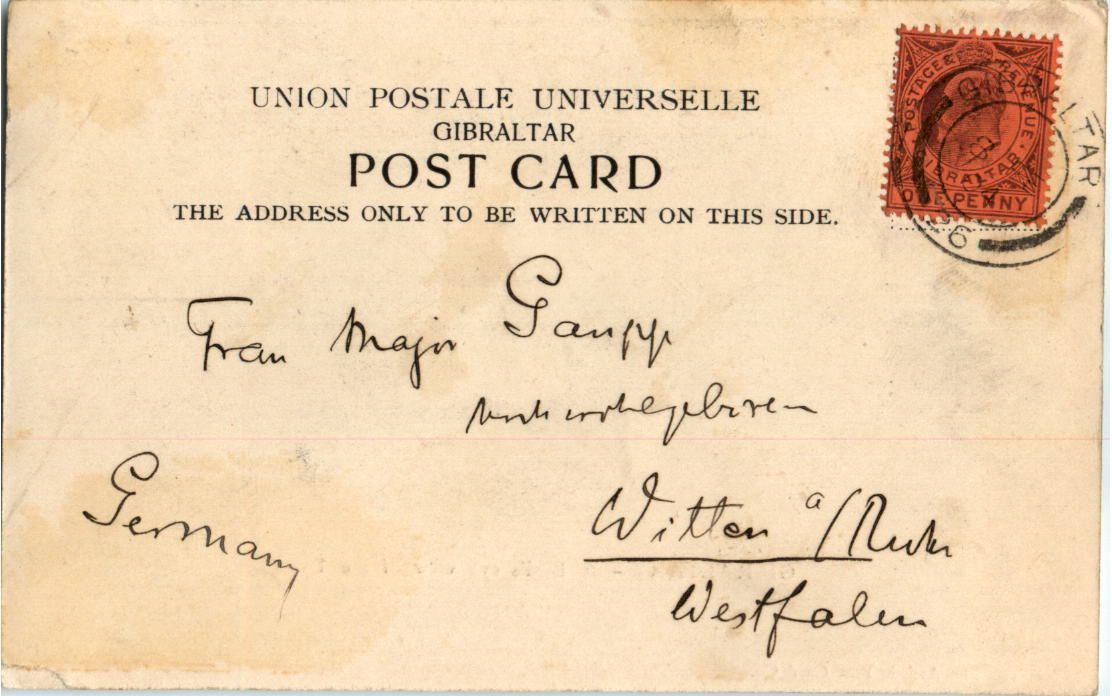 UNION POSTALE UNIVERSELLE
GIBRALTAR
POST CARD
THE ADDRESS ONLY TO BE WRITTEN ON THIS SIDE.
POSTAGE & REVENUE
GIBRALTAR
ONE PENNY
GIBRALTAR
26
Frau Major Gaupp
Germany
Witten a/Ruhr
Westfalen